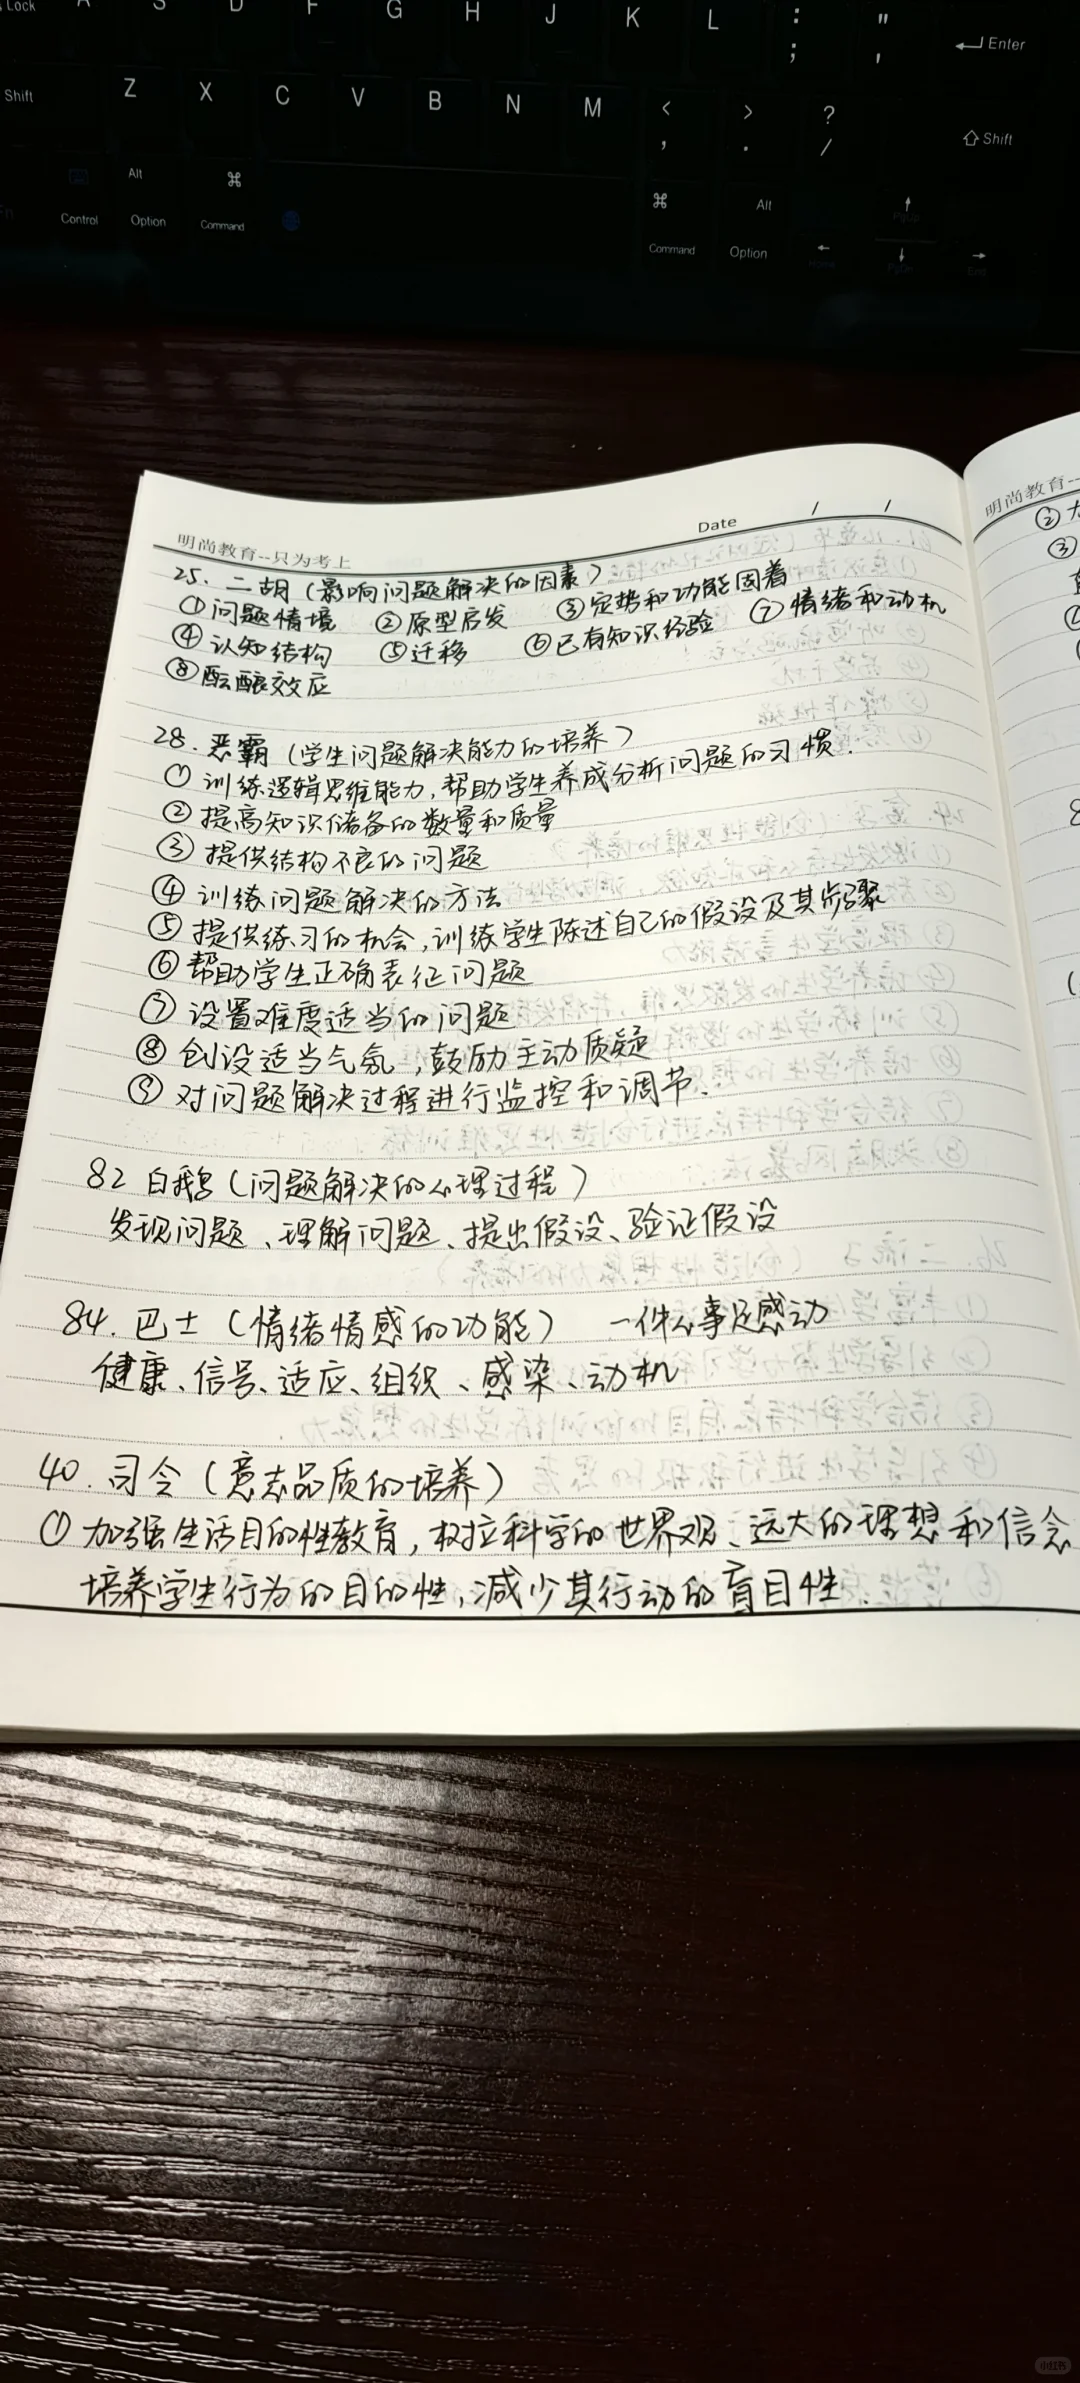 Lock A S D F G H J K L : ; " ' Enter
Shift Z X C V B N M < , > . ? / Shift
Fn Control Alt Option ⌘ Command ⌘ Command Alt Option Home PgUp PgDn End
明尚教育--只为考上 Date / /
25. 二胡(影响问题解决的因素)
①问题情境 ②原型启发 ③定势和功能固着
④认知结构 ⑤迁移 ⑥已有知识经验 ⑦情绪和动机
⑧酝酿效应
28. 恶霸(学生问题解决能力的培养)
①训练逻辑思维能力,帮助学生养成分析问题的习惯.
②提高知识储备的数量和质量
③提供结构不良的问题
④训练问题解决的方法
⑤提供练习的机会,训练学生陈述自己的假设及其步骤
⑥帮助学生正确表征问题
⑦设置难度适当的问题
⑧创设适当气氛,鼓励主动质疑
⑨对问题解决过程进行监控和调节.
82 白鹅(问题解决的心理过程)
发现问题、理解问题、提出假设、验证假设
84. 巴士(情绪情感的功能) 一件小事足感动
健康、信号、适应、组织、感染、动机
40. 司令(意志品质的培养)
①加强生活目的性教育,树立科学的世界观、远大的理想和信念
培养学生行为的目的性,减少其行动的盲目性.
明尚教育--
②
③
小红书